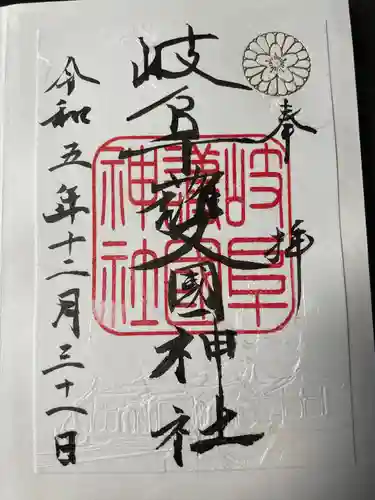 奉拝
岐阜護國神社
岐阜護國神社
令和五年十二月三十一日